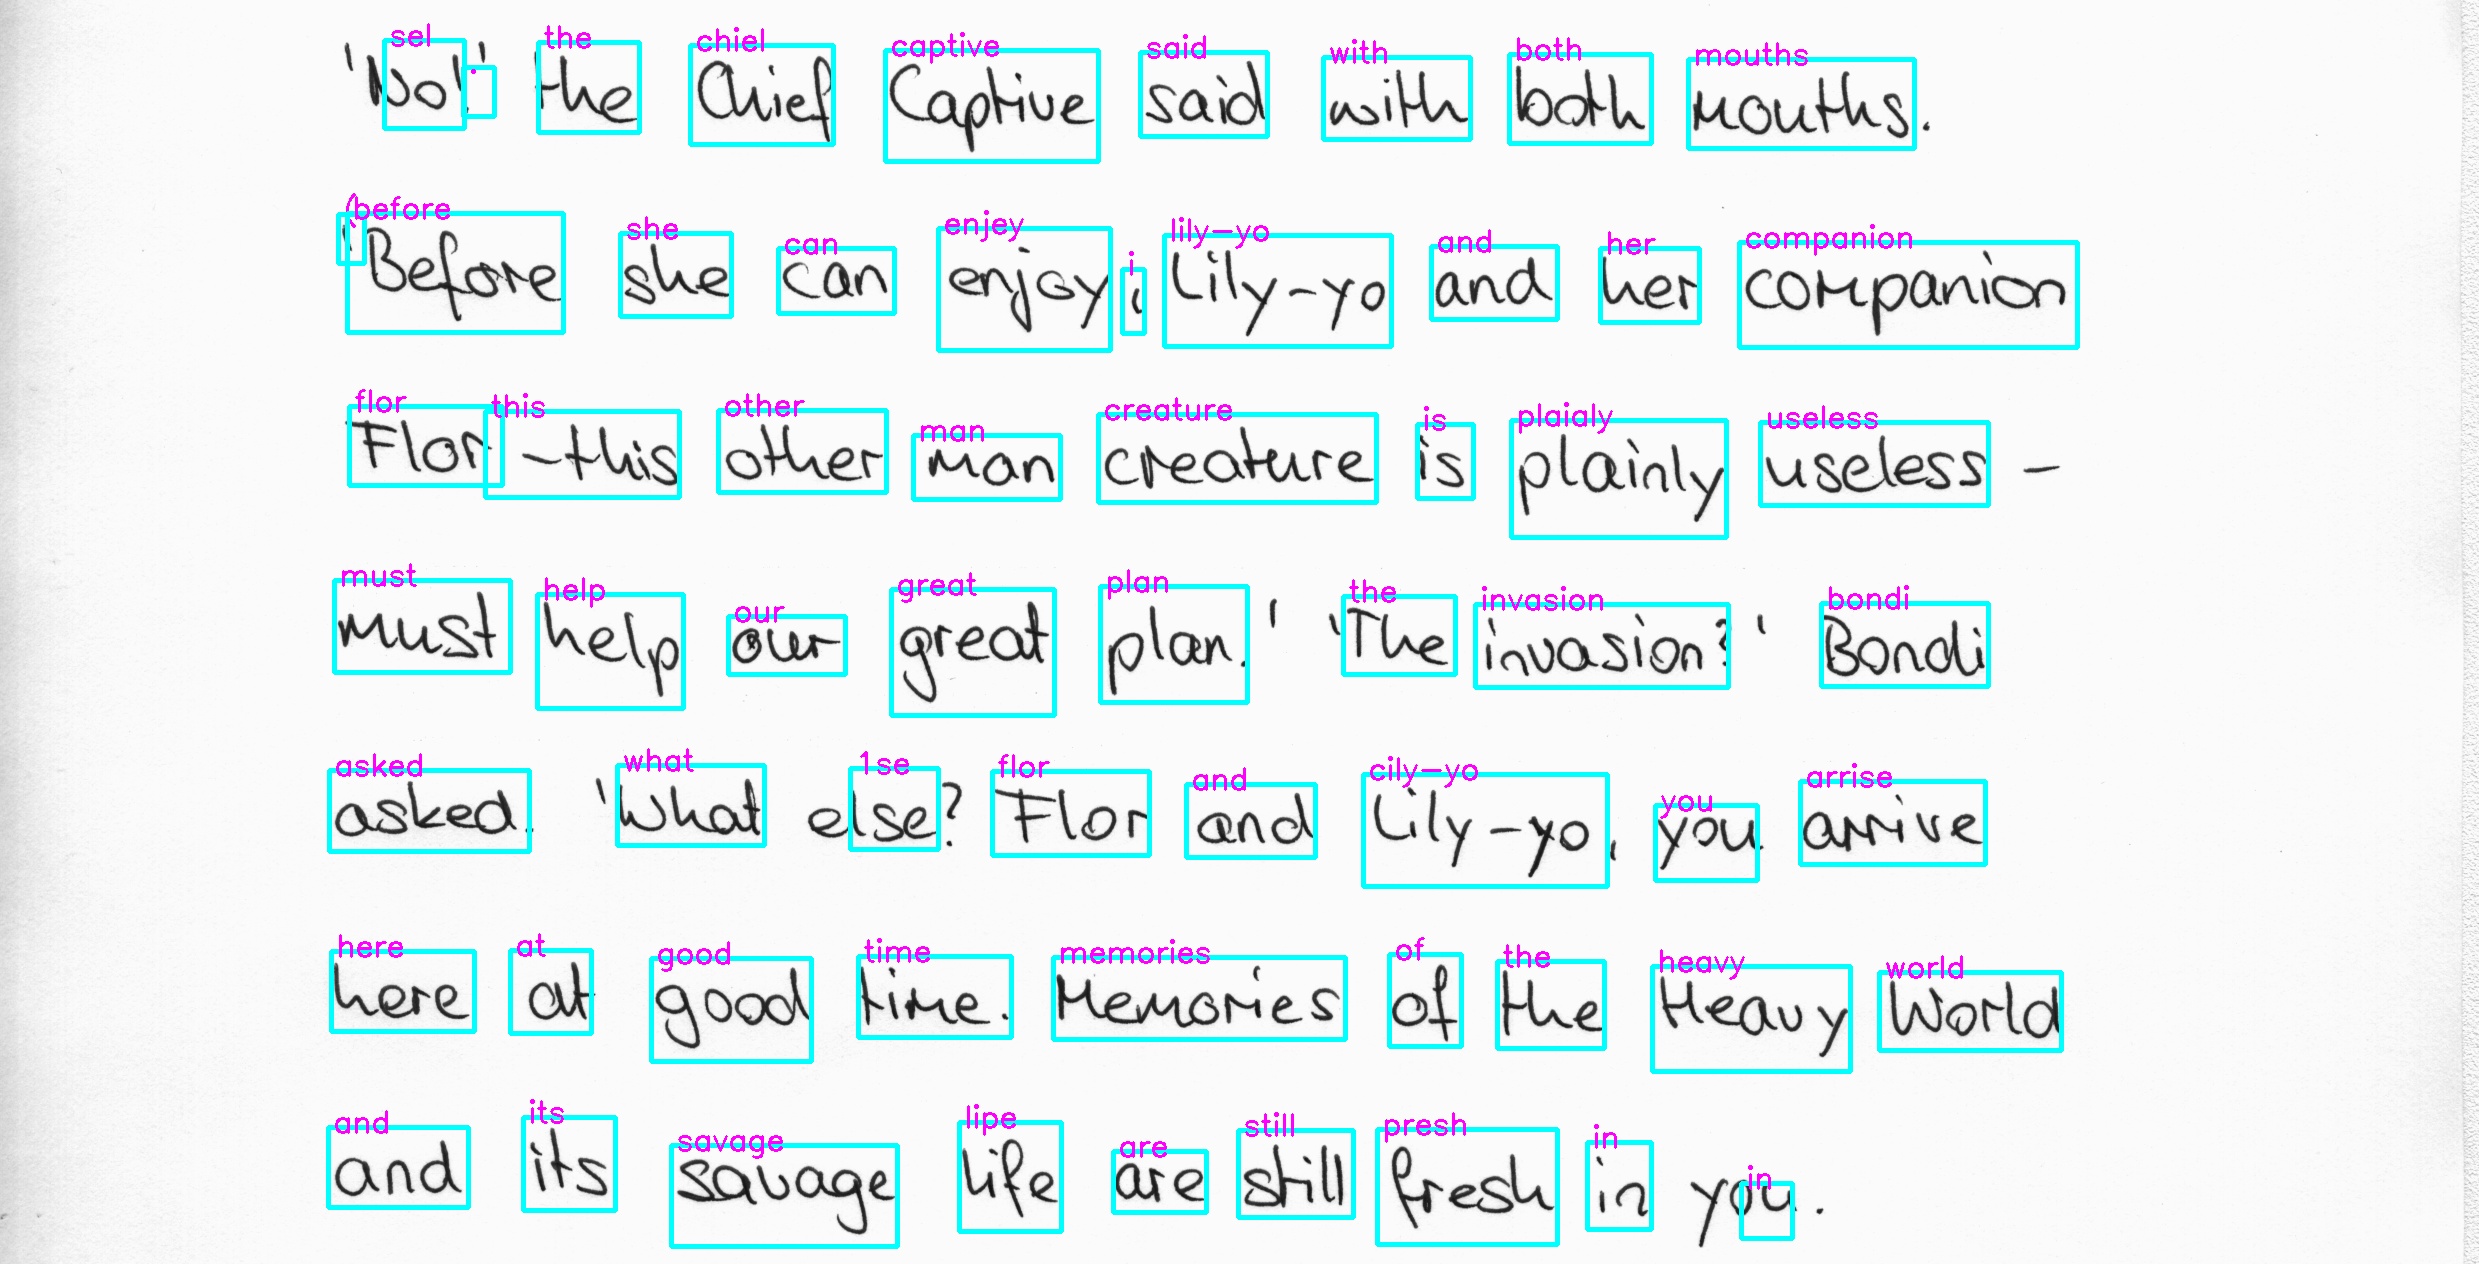 sel . the chiel captive said with both mouths
'No!' the Chief Captive said with both mouths.
( before she can enjey i lily-yo and her companion
'Before she can enjoy, Lily-yo and her companion
flor this other man creature is plaialy useless
Flor -this other man creature is plainly useless -
must help our great plan the invasion bondi
must help our great plan.' 'The invasion?' Bondi
asked what 1se flor and cily-yo you arrise
asked. 'What else? Flor and Lily-yo, you arrive
here at good time memories of the heavy world
here at good time. Memories of the Heavy World
and its savage lipe are still presh in in
and its savage life are still fresh in you.